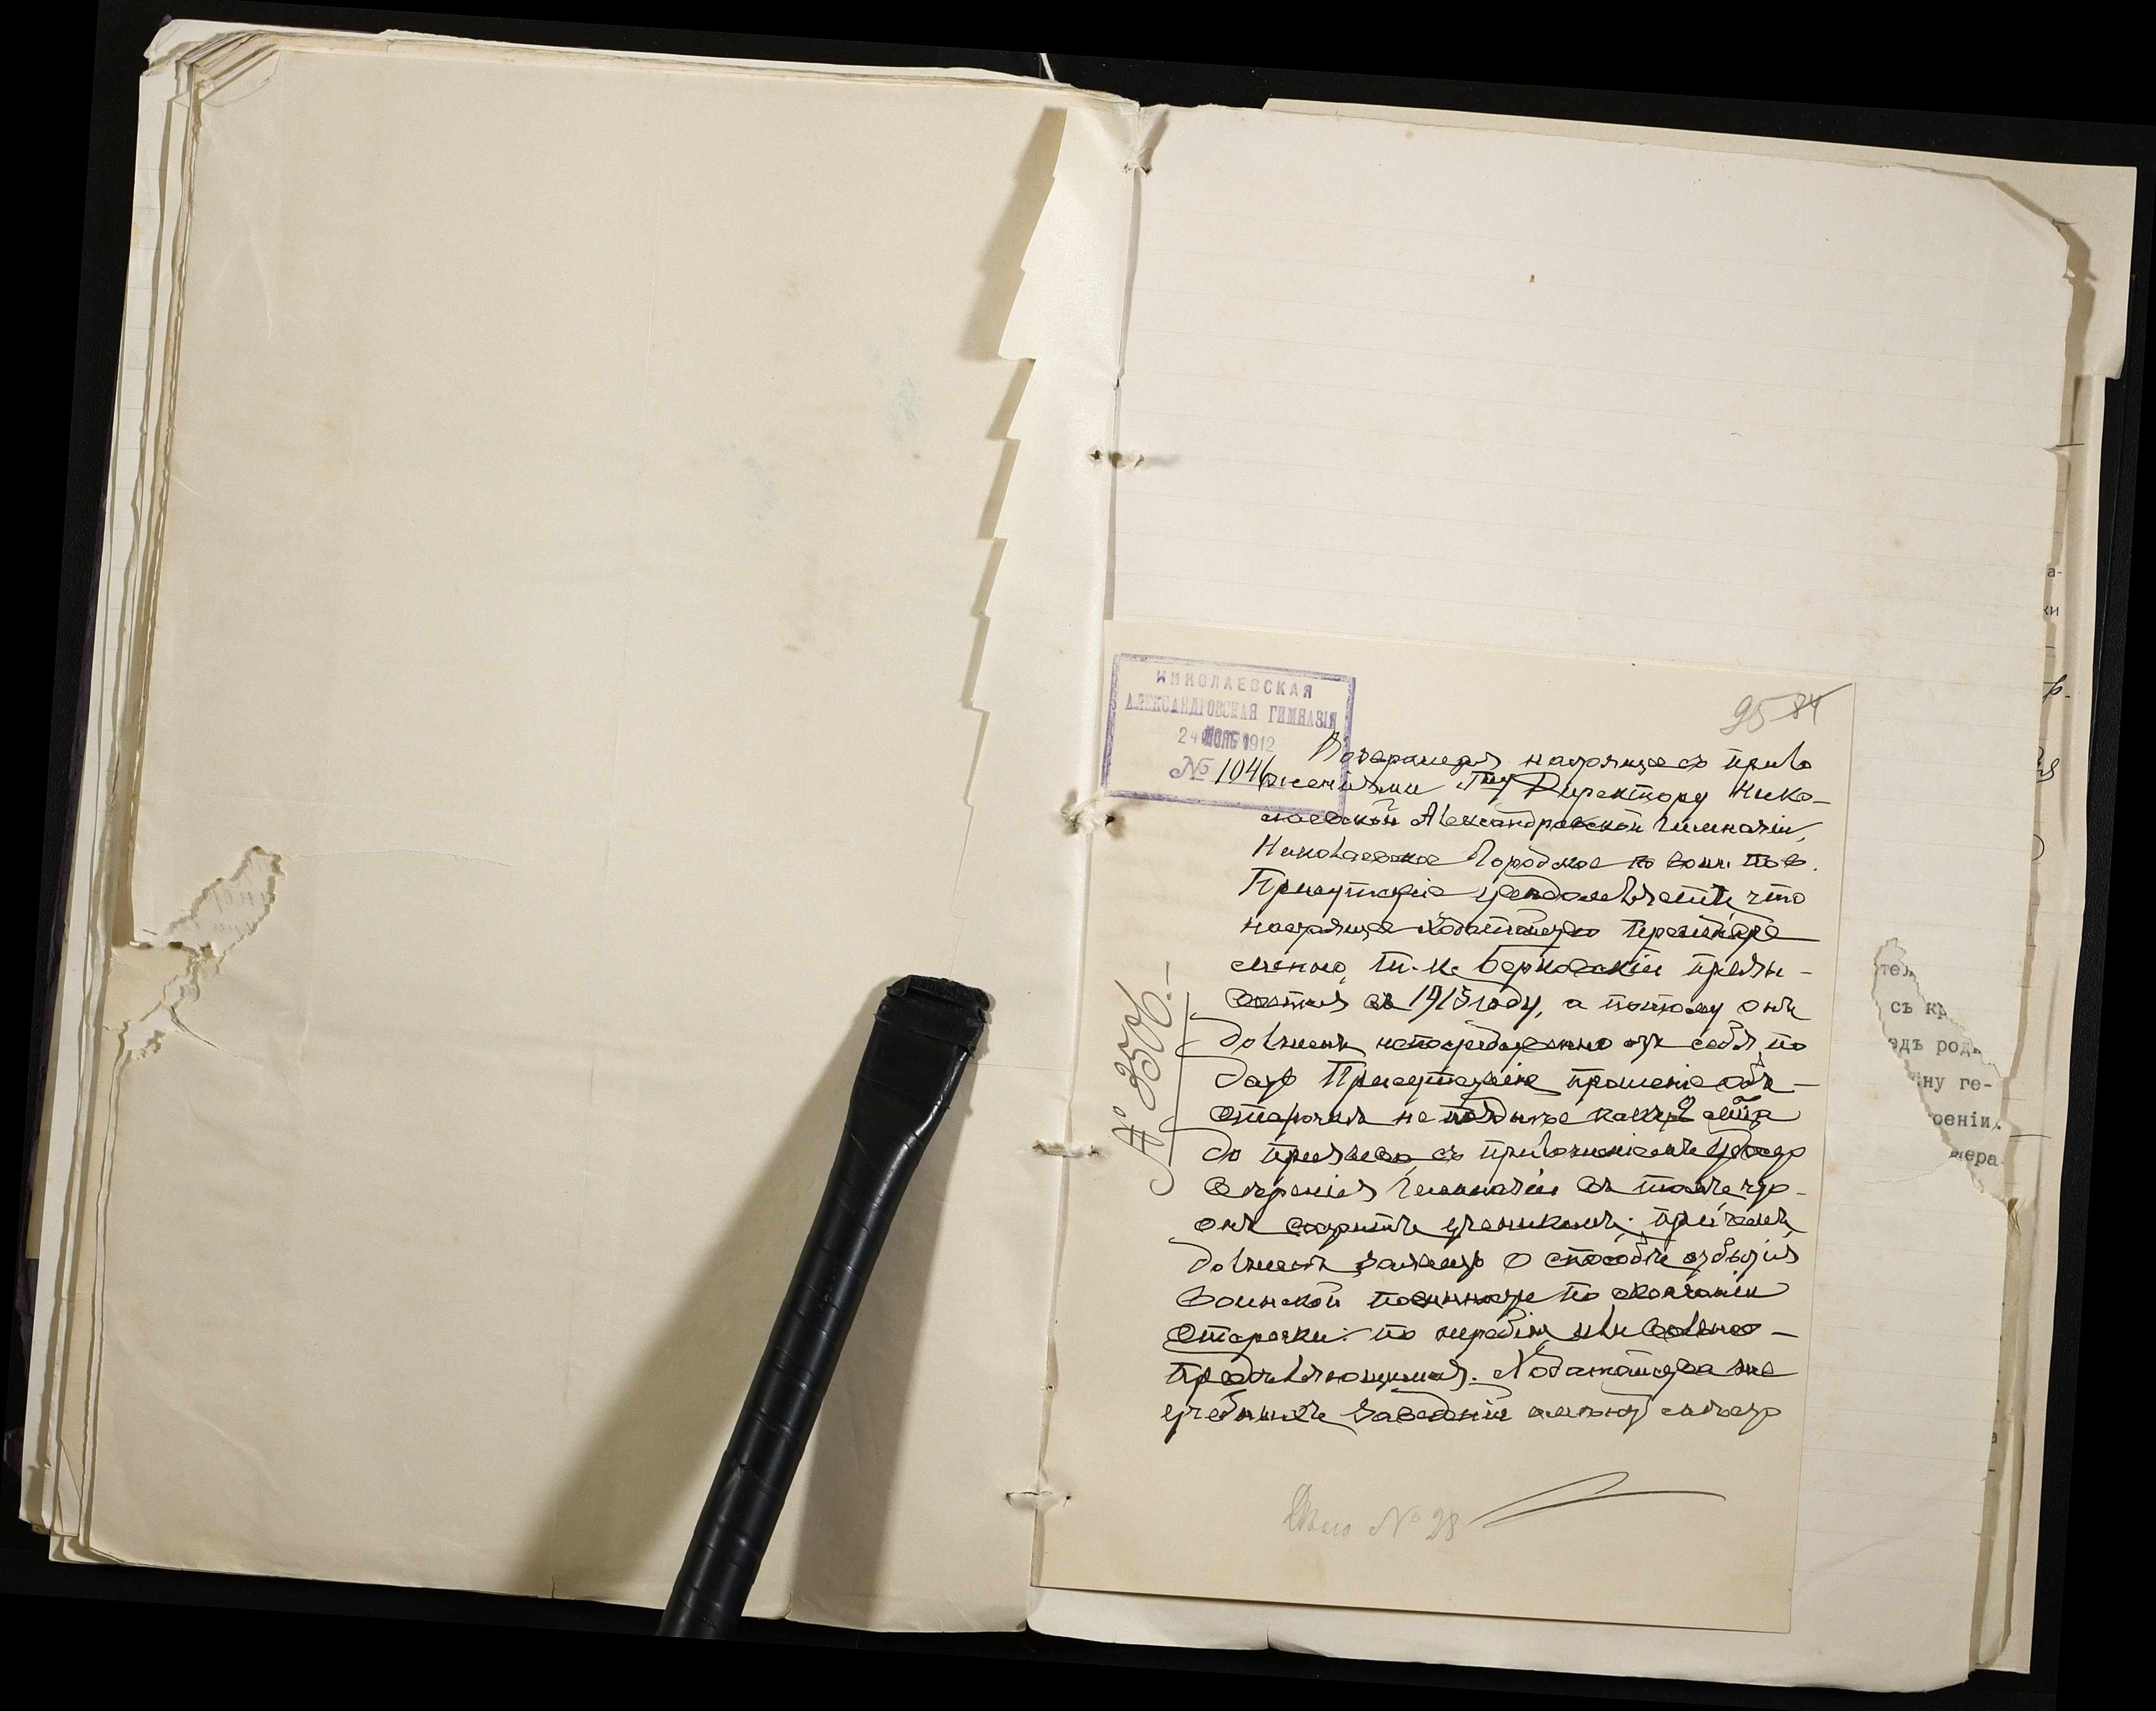 НИКОЛАЕВСКАЯ
АЛЕКСАНДРОВСКАЯ ГИМНАЗІЯ
24 1912
№ 1046
95 84
Возвращая настоящее съ прило
женіями Гну Директору Нико-
лаевской Александровской Гимназіи,
Николаевское Городское по воин. пов.
Присутствіе увѣдомляетъ, что
настоящее ходатайство
т. к. Берковскій призы-
вается въ 1913 году, а потому онъ
долженъ непосредственно отъ себя по
дать въ Присутствіе прошеніе объ
отсрочкѣ не позднѣе какъ 2 м-ца
до призыва, съ приложеніемъ удосто
вѣренія Гимназіи въ томъ, что
онъ состоитъ ученикомъ; причемъ
долженъ заявить о способѣ отбытія
воинской повинности по окончаніи
отсрочки: по жребію или вольно-
опредѣляющимся. Ходатайства же
учебныхъ заведеній
№ 3506.-
Дѣло № 23
а-
ки
тел
съ кр
едъ роди
ину ге-
оеніи.
мера